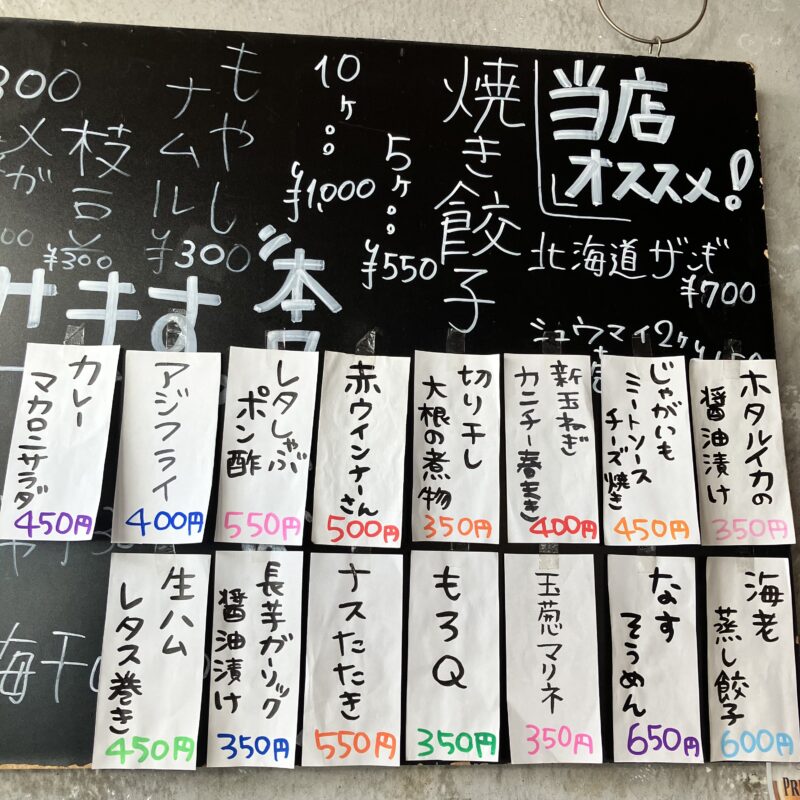 当店
オススメ!
北海道ザンギ
¥700
シュウマイ2ケ
焼き餃子
5ケ
¥550
10ケ
¥1,000
もやし
ナムル
¥300
枝豆
¥300
300
ます
本日
ホタルイカの
醤油漬け
350円
じゃがいも
ミートソース
チーズ焼き
450円
新玉ねぎ
カニチー春まき
400円
切り干し
大根の煮物
350円
赤ウインナーさん
500円
レタしゃぶ
ポン酢
550円
アジフライ
400円
カレー
マカロニサラダ
450円
海老
蒸し餃子
600円
なす
そうめん
650円
玉葱マリネ
350円
もろQ
350円
ナスたたき
550円
長芋ガーリック
醤油漬け
350円
生ハム
レタス巻き
450円